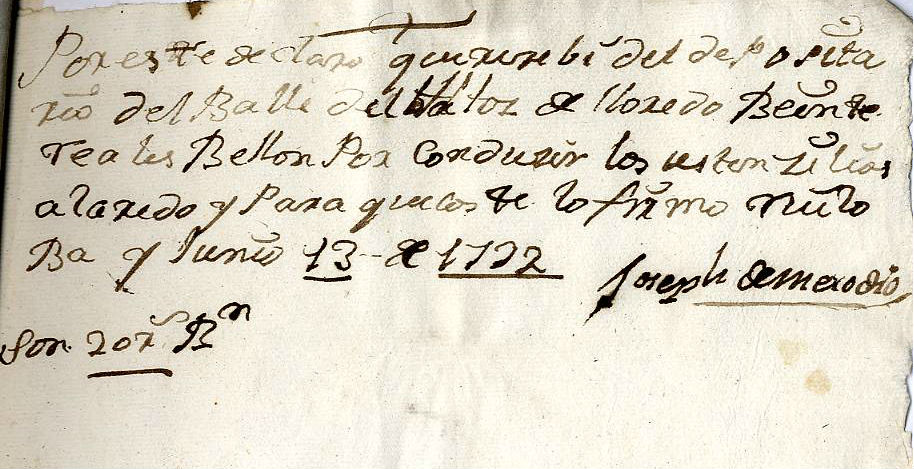 Por este declaro que rrezebi del deposita
rio del Balle del Alfoz de lloredo Beinte
reales Bellon Por Conduzir los ustensilios
a laredo y Para que coste lo firmo Nulo
Ba y Junio 13 de 1732
Joseph de Merodio
Son 20 rs Bn